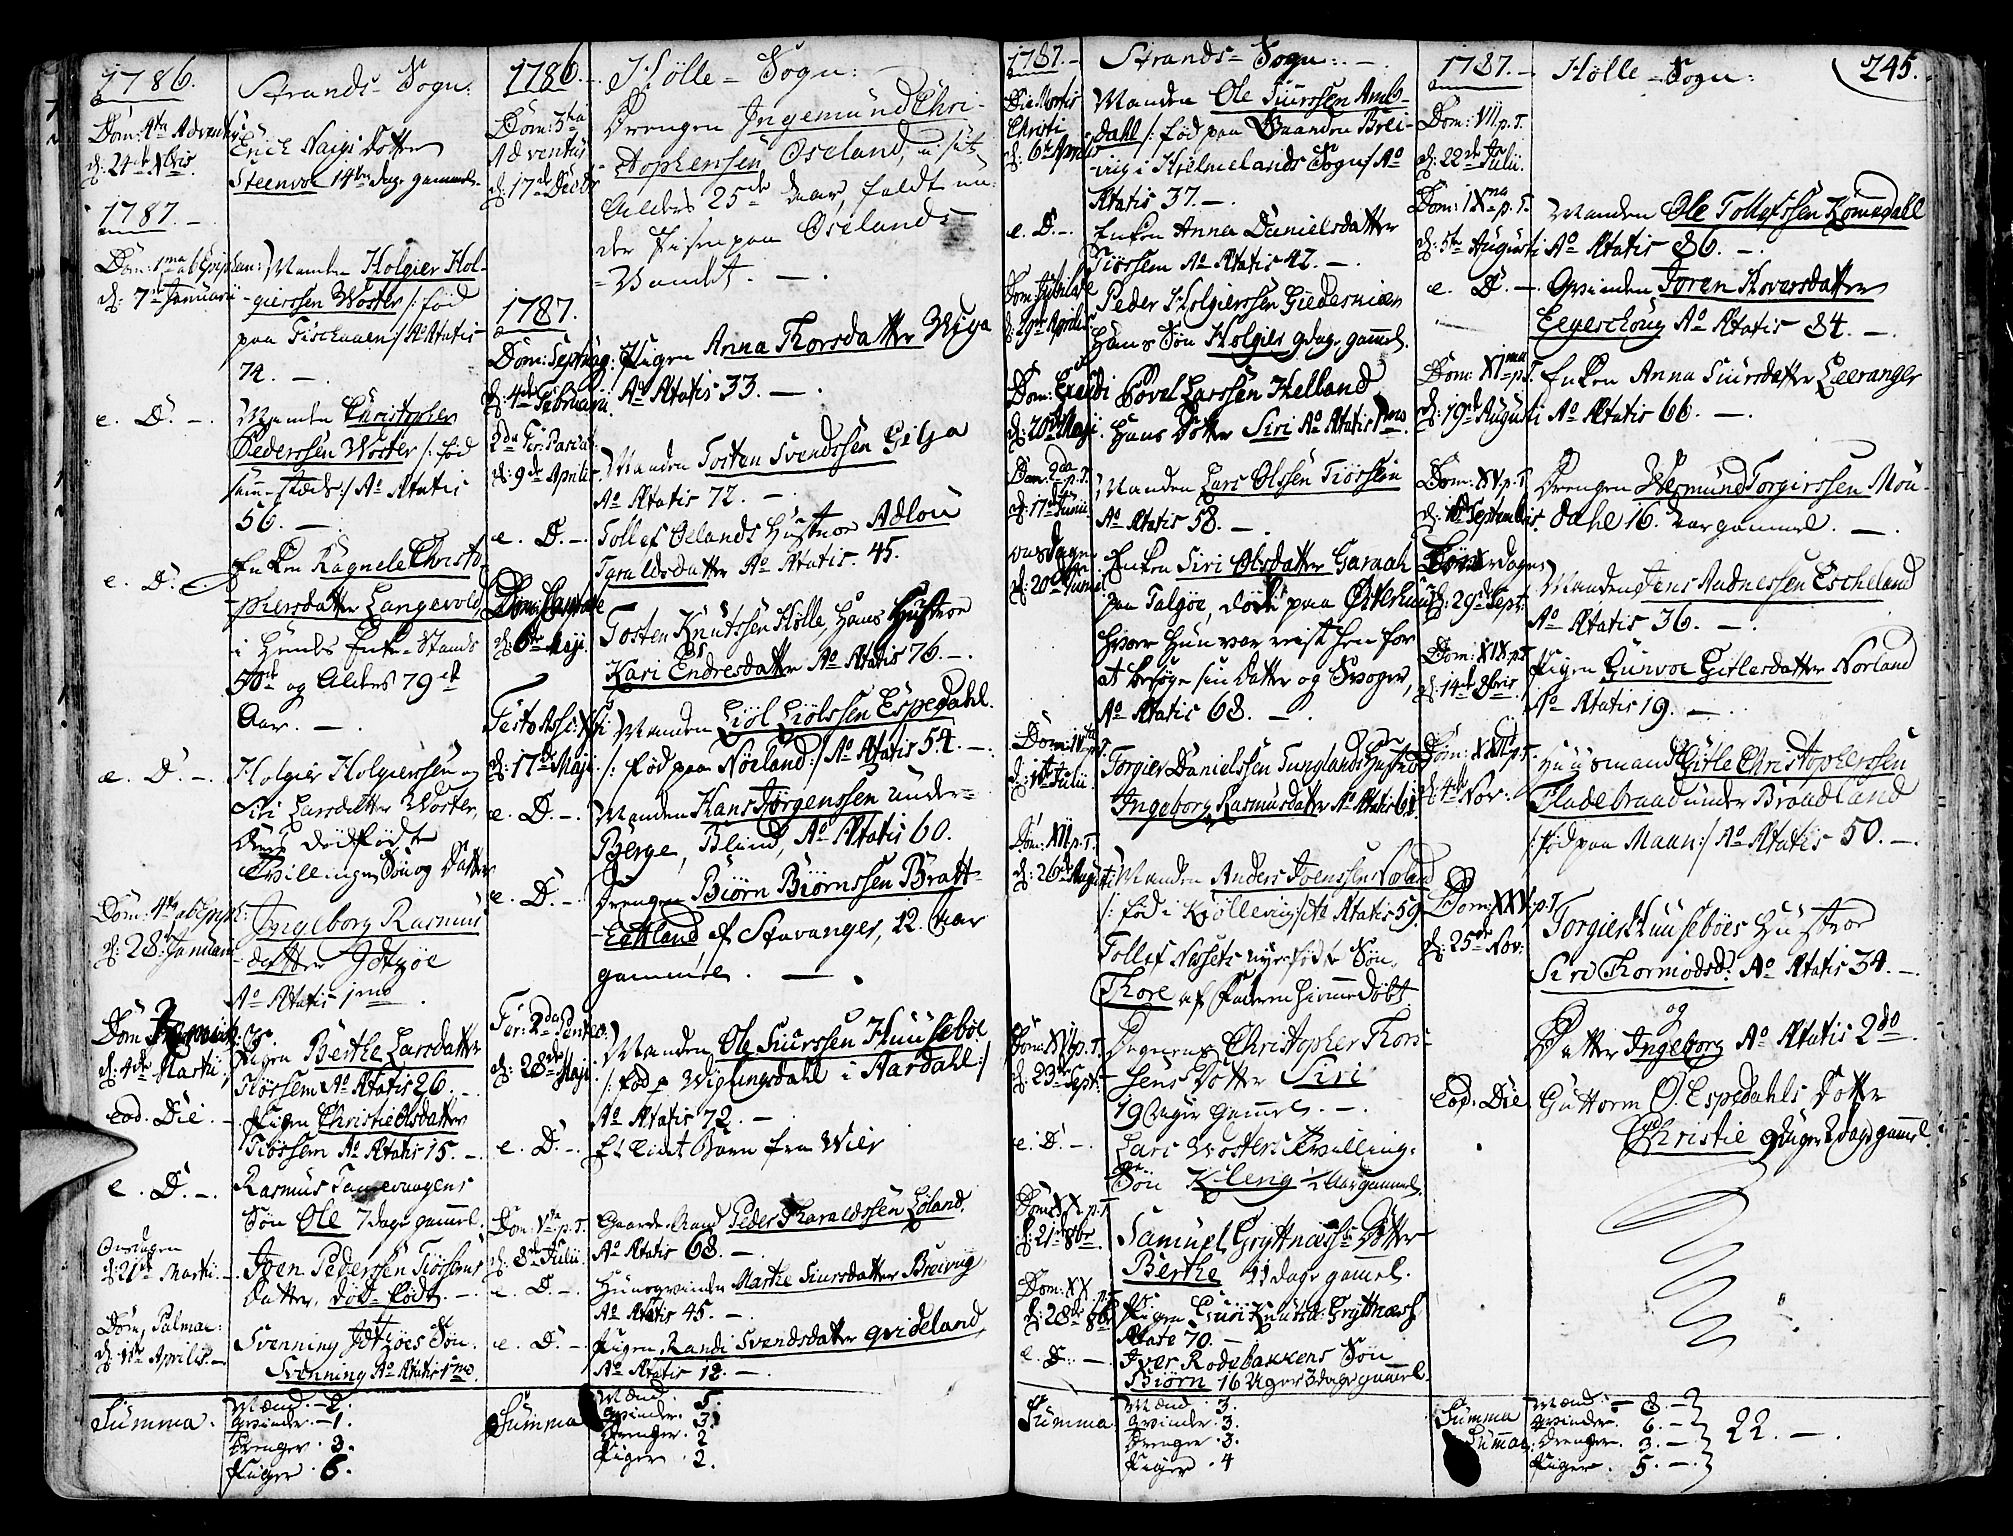 1786.
Strands-Sogn:
Dom: 4ta Adventus
d: 24de Xbris.
Erich Naigs Dotter
Steenvoe 14ten dags gammel.
1787.
Dom: 1ma ab Epiphan:
d: 7de Januarii
Manden Holgier Hol-
gierssen Woster /: fød
paa Fischaaen /: Ao Ætatis
74.
e. D.
Manden Christopher
Pederssen Woster /: fød
samme stæds :/ Ao Ætatis
56.
e. D.
Enken Ragnele Christo-
phersdatter Langevold
i Hendes Enke-Stands
50de og Alders 79de
Aar.
e. D.
Holgier Holgierssen og
Siri Larsdatter Woster,
Deres dødfødte
Tvillinger Søn og Datter
Dom: 4ta ab Epiph:
d: 28de Januarii
Ingeborg Rasmus
datter Jøtzøe
Ao Ætatis 1mo
d: 4de Martii,
Pigen Berthe Larsdatter
Tiøssem Ao Ætatis 26.
Eod. Die
Pigen Christie Olsdatter
Tiøssem Ao Ætatis 15.
e. D.
Rasmus Tangevaagens
Søn Ole 7 dage gammel.
Onsdagen
d: 21de Martii
Joen Pederssen Tiøssems
datter, død-født.
Dom: Palmar:
d: 1ste Aprilis.
Svenning Jøtzøes Søn
Svenning Ao Ætatis 1mo.
Summa.
Mænd. 2.
Qvinder. 1.
Drenger. 3.
Piger. 6.
1786.
Hølle-Sogn:
Dom: 3tia
Adventus
d: 17de Decbr
Drengen Ingemund Chri-
stopherssen Øseland, i sit
Alders 25de Aar, faldt un-
der Jisen paa Øselands
Vandet.
1787.
Dom: Septuag:
d: 4de Februarii
Pigen Anna Thorsdatter Wiga
Ao Ætatis 33.
2da Fer: Pascat:
d: 9de Aprilis.
Manden Tosten Svendssen Geisa
Ao Ætatis 72.
e. D.
Tollef Øelands Hustroe Adlou
Taraldsdatter Ao Ætatis 45.
Dom: Cantate
d: 6te Maji.
Tosten Knutssen Hølle, Hans Hustroe
Kari Endresdatter Ao Ætatis 76.
Festo Asc: Xsti
d: 17de Maji
Manden Liøl Liølssen Espedahl
/: fød paa Nørland :/ Ao Ætatis 54.
e. D.
Manden Hans Jørgenssen under-
Berge, Blind, Ao Ætatis 60.
e. D.
Drengen Biørn Biørnssen Bratt-
Eettland af Stavanger, 12. Aar
gammel.
Fer: 2da Pentec:
d: 28de Maji
Manden Ole Siurssen Huusebøe
/: fød p. Wiglingsdahl i Aardahl :/
Ao Ætatis 72.
e. D.
Et lidet Barn fra Wier
Dom: Vta p. T.
d: 8de Julii.
Gaarde-Mand Peder Tharaldssen Løland.
Ao Ætatis 68.
e. D.
Huusqvinden Marthe Siursdatter Breivig
Ao Ætatis 45.
e. D.
Pigen Randi Svendsdatter Qvideland
Ao Ætatis 18.
Summa
Mænd. 5.
Qvinder. 3.
Drenger. 2
Piger. 2.
1787.
Strands-Sogn:
Die Mortis
Christi
d: 6te Aprilis
Manden Ole Siurssen Amb-
dahl /: fød paa Gaarden Brei-
vig i Hielmelands Sogn/ Ao
Ætatis 37.
e. D.
Enken Anna Danielsdatter
Tiøssem Ao Ætatis 42.
Dom: Jubilate
d: 29de Aprilis
Peder Holgierssen Giedernæs
Hans Søn Holgier 9 dage gammel.
Dom: Exaudi
d: 20de Maji.
Povel Larssen Helland
Hans Dotter Siri Ao Ætatis 1mo.
Dom: 2da p. T.
d: 17de Junii
Manden Lars Olssen Tiøssem
Ao Ætatis 58.
Onsdagen
d: 20de Junii
Enken Siri Olsdatter Garaah
paa Talgøe, døde paa Østerhuus
hvor hun var reist hen for
at besøge sin datter og Svoger,
Ao Ætatis 68.
Torgier Danielssen Tunglands Hustroe
Ingeborg Rasmusdatter Ao Ætatis 61.
Dom: XII p. T.
d: 26de Augusti
Manden Anders Joenssen Norland
/: fød i Kjøllevig/ Ao Ætatis 59.
Tollef Nessets nye fødte Søn,
Thore af Faderen hiemme døbt.
Dom: XVI p. T.
d: 23de Sept:
Degnens Christopher Thors-
sens Dotter Siri
19 Uger gammel.
e. D.
Lars Wosters Tvilling-
Søn Kleng 1/2 Aar gammel.
Dom: XX p. T.
d: 21de 8br.
Samuel Gryttnæss Dotter
Berthe 11 dage gamel.
Dom: XX. p. T
d: 28de 8br
Pigen Guri Knutsd: Gryttnæss
Ætate 70.
e. D.
Iver Rodebakkens Søn
Biørn 16 Uger 3 dage gammel.
Summa
Mænd. 3.
Qvinder. 3.
Drenger. 3.
Piger. 4
1787.
Hølle-Sogn:
245.
Dom: VII p. T.
d: 22de Julii.
Dom: IXna p. T.
d: 5te Augusti
Manden Ole Tollefssen Kommedahl
Ao Ætatis 86.
e. D.
Qvinden Joren Thoversdatter
Eegeschoug Ao Ætatis 84.
Dom: XIma p. T.
d: 19de Augusti
Enken Anna Siursdatter Leeranger
Ao Ætatis 66.
Dom: XV. p. T
d: 16de Septembris.
Drengen Wermund Torgierssen Mou-
dahl 16. Aar gammel.
d: 29de Sept:
Manden Jens Aadnessen Escheland
Ao Ætatis 36.
Dom: XIX p. T
d: 14de 8bris
Pigen Gunvor Gitlesdatter Norland
Ao Ætatis 19.
Dom: XXII p. T.
d: 4de Nov:
Huusmand Gitle Christopherssen
Fladebraad under Braadland
/: fød paa Maan :/ Ao Ætatis 50.
Dom: XXV p. T.
d: 25de Nov:
Torgier Huusebøes Hustroe
Siri Thormodsd: Ao Ætatis 34.
og
Datter Ingeborg Ao Ætatis 2do.
Eod: Die
Guttorm O. Espedahls Dotter
Christie 9 Uger 2 dage gamel.
Summa
Summar:
Mænd: 8.
Qvinder. 6.
Drenger. 3.
Piger. 5.
22.